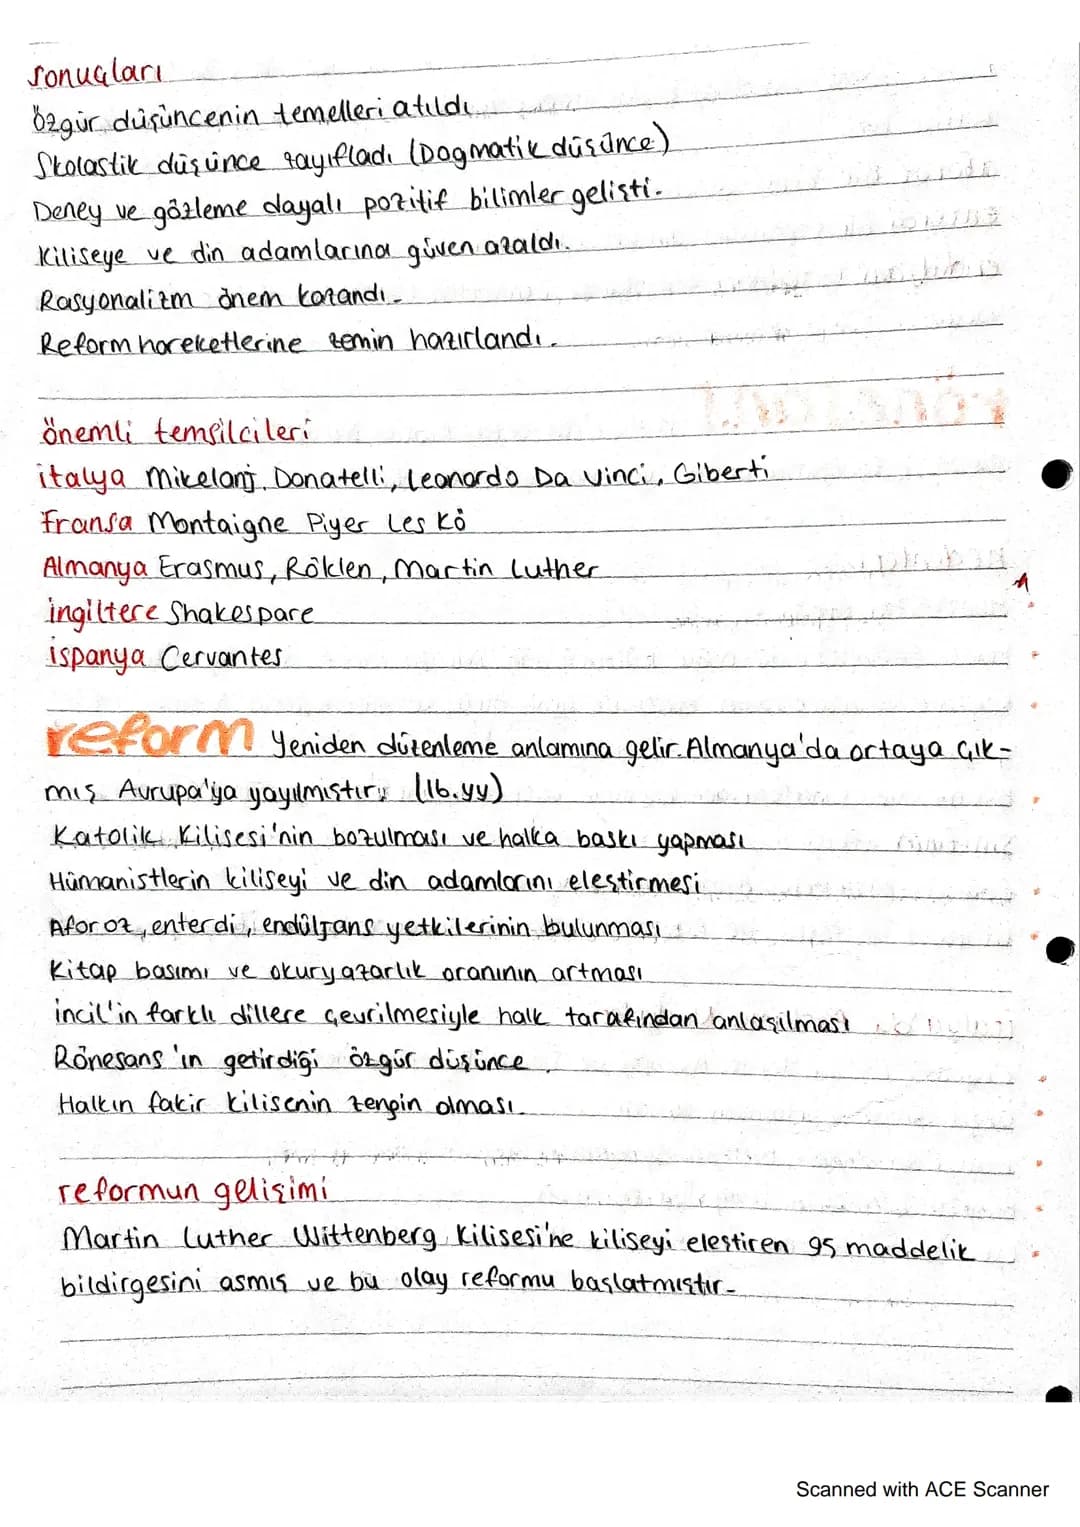 sonuçları
Özgür düşüncenin temelleri atıldı.
Skolastik düşünce zayıfladı (Dogmatik düşünce)
Deney ve gözleme dayalı pozitif bilimler gelişti.
Kiliseye ve din adamlarına güven azaldı.
Rasyonalizm önem kazandı.
Reform hareketlerine zemin hazırlandı.
önemli temsilcileri
italya Mikelanj, Donatelli, Leonardo Da Vinci, Giberti
Fransa Montaigne Piyer Les Ko
Almanya Erasmus, Röklen, Martin Luther
ingiltere Shakespare
ispanya Cervantes
reform Yeniden düzenleme anlamına gelir. Almanya'da ortaya çık-
mış Avrupa'ya yayılmıştır. (16.yy)
Katolik Kilisesi'nin bozulması ve halka baskı yapması
Hümanistlerin kiliseyi ve din adamlarını eleştirmesi
Aforoz, enterdi, endüljans yetkilerinin bulunması
Kitap basımı ve okuryazarlık oranının artması
incil'in farklı dillere çevrilmesiyle halk tarafından anlaşılması
Rönesans'ın getirdiği özgür düşünce
Halkın fakir kilisenin zengin olması.
reformun gelişimi
Martin Luther Wittenberg Kilisesi'ne kiliseyi eleştiren 95 maddelik
bildirgesini asmış ve bu olay reformu başlatmıştır.
Scanned with ACE Scanner